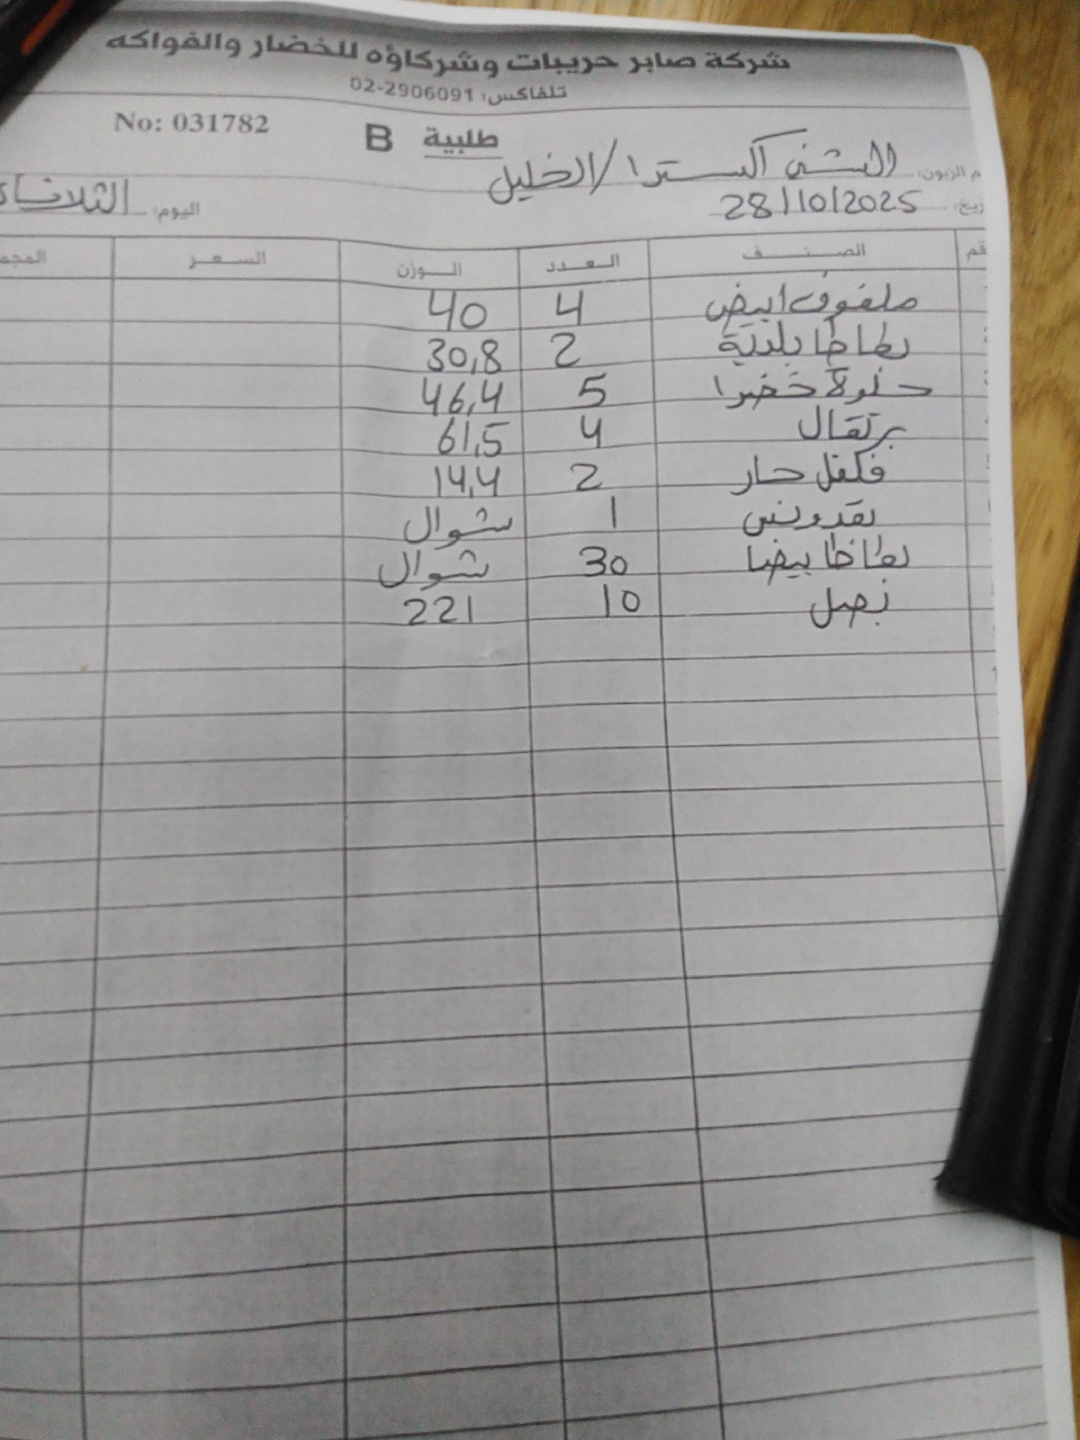 شركة صابر حريبات وشركاؤه للخضار والفواكه
تلفاكس: 02-2906091
No: 031782
طلبية B
م الزبون: الشني اكسترا / الخليل
ريخ: 28/10/2025
اليوم: الثلاثاء
قم الصنف العدد الوزن السعر المجم
ملفوف ابيض 4 40
بطاطا بلدية 2 30,8
حلوة خضرا 5 46,4
برتقال 4 61,5
فلفل حار 2 14,4
بقدونس 1 شوال
بطاطا بيضا 30 شوال
بصل 10 221